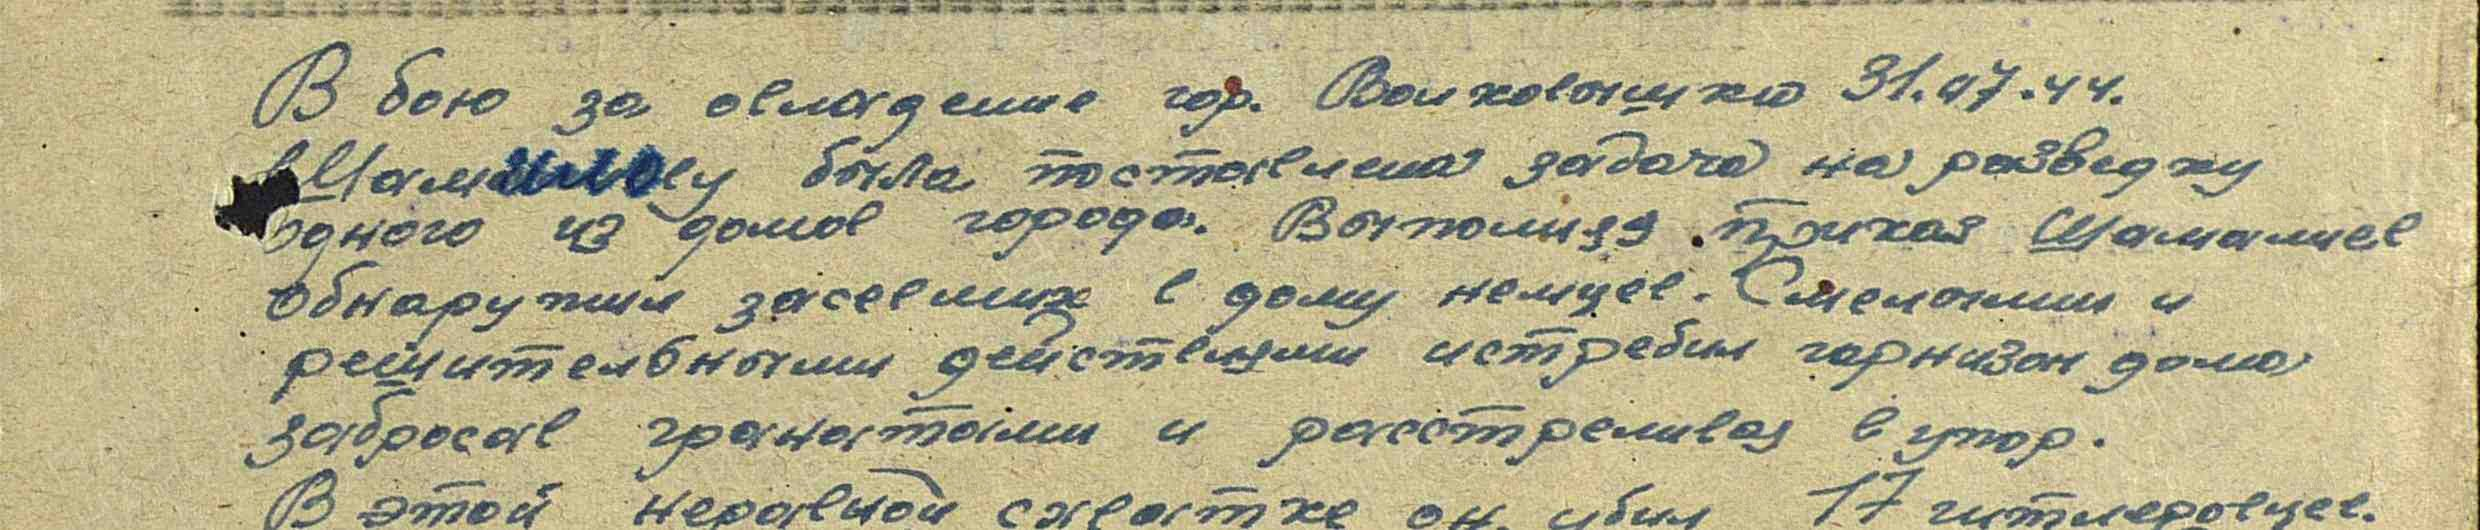 В бою за овладение гор. Волковышки 31.07.44.
Шамилову была поставлена задача на разведку
одного из домов города. Выполняя приказ Шамалиев
обнаружил засевших в дому немцев. Смелыми и
решительными действиями истребил гарнизон дома
забросав гранатами и расстреливая в упор.
В этой неравной схватке он убил 17 гитлеровцев.